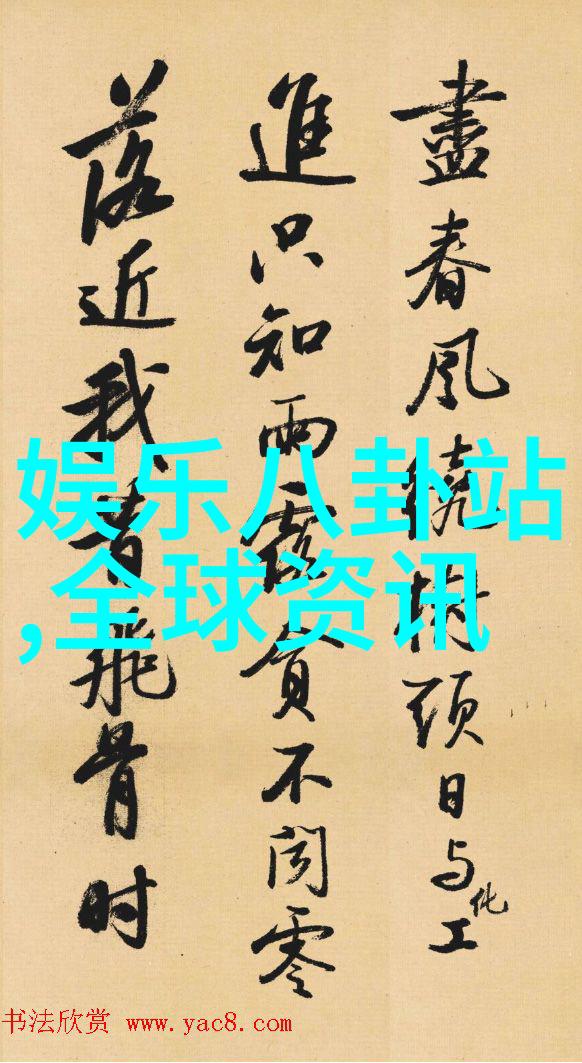 盡春風繞樹頭日与化工
進只知雨露貪不聞零
落近我昔飛骨时
娱乐八卦站
,全球资讯
书法欣赏 www.yac8.com